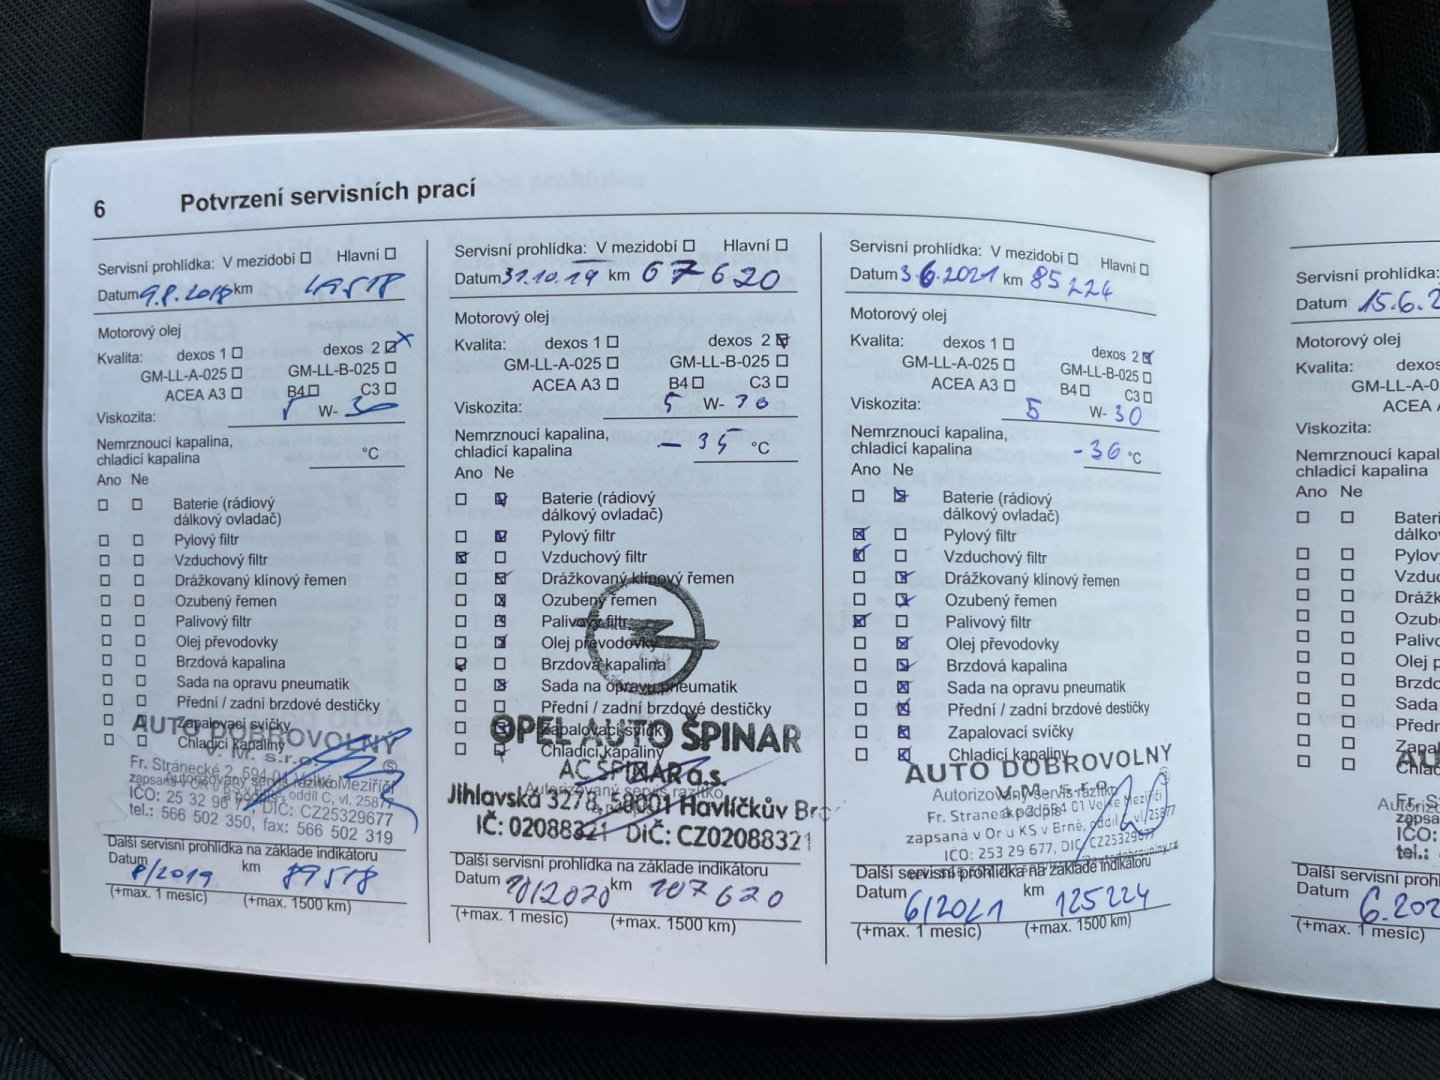 6 Potvrzení servisních prací
Servisní prohlídka: V mezidobí Hlavní
Datum 9.8.2018 km 49518
Motorový olej
Kvalita: dexos 1 dexos 2
GM-LL-A-025 GM-LL-B-025
ACEA A3 B4 C3
Viskozita: 5 W- 30
Nemrznoucí kapalina,
chladicí kapalina °C
Ano Ne
Baterie (rádiový
dálkový ovladač)
Pylový filtr
Vzduchový filtr
Drážkovaný klínový řemen
Ozubený řemen
Palivový filtr
Olej převodovky
Brzdová kapalina
Sada na opravu pneumatik
Přední / zadní brzdové destičky
Zapalovací svíčky
Chladicí kapaliny
AUTO DOBROVOLNY
V. M. s.r.o.
Fr. Stránecké 2, 594 01 Velké Meziříčí
Autorizovaný servis razítko
a podpis
IČO: 25 32 96 77, DIČ: CZ25329677
tel.: 566 502 350, fax: 566 502 319
Další servisní prohlídka na základe indikátoru
Datum 8/2019 km 89518
(+max. 1 mesíc) (+max. 1500 km)
Servisní prohlídka: V mezidobí Hlavní
Datum 31.10.19 km 67620
Motorový olej
Kvalita: dexos 1 dexos 2
GM-LL-A-025 GM-LL-B-025
ACEA A3 B4 C3
Viskozita: 5 W- 30
Nemrznoucí kapalina,
chladicí kapalina - 35 °C
Ano Ne
Baterie (rádiový
dálkový ovladač)
Pylový filtr
Vzduchový filtr
Drážkovaný klínový řemen
Ozubený řemen
Palivový filtr
Olej převodovky
Brzdová kapalina
Sada na opravu pneumatik
Přední / zadní brzdové destičky
Zapalovací svíčky
Chladicí kapaliny
OPEL AUTO ŠPINAR
AC ŠPINAR a.s.
Autorizovaný servis razítko
Jihlavská 3278, 58001 Havlíčkův
IČ: 02088321 DIČ: CZ02088321
Další servisní prohlídka na základe indikátoru
Datum 10/2020 km 107620
(+max. 1 mesíc) (+max. 1500 km)
Servisní prohlídka: V mezidobí Hlavní
Datum 3.6.2021 km 85224
Motorový olej
Kvalita: dexos 1 dexos 2
GM-LL-A-025 GM-LL-B-025
ACEA A3 B4 C3
Viskozita: 5 W- 30
Nemrznoucí kapalina,
chladicí kapalina -36 °C
Ano Ne
Baterie (rádiový
dálkový ovladač)
Pylový filtr
Vzduchový filtr
Drážkovaný klínový řemen
Ozubený řemen
Palivový filtr
Olej převodovky
Brzdová kapalina
Sada na opravu pneumatik
Přední / zadní brzdové destičky
Zapalovací svíčky
Chladicí kapaliny
AUTO DOBROVOLNY
V.M. s.r.o.
Autorizovaný servis razítko
a podpis
zapsaná v Or u KS v Brně, oddíl vl. 25977
IČO: 253 29 677, DIČ: CZ25329677
Další servisní prohlídka na základe indikátoru
Datum 6/2021 km 125224
(+max. 1 mesíc) (+max. 1500 km)
Servisní prohlídka:
Datum 15.6.2
Motorový olej
Kvalita: dexos
GM-LL-A-0
ACEA A
Viskozita:
Nemrznoucí kapal
chladicí kapalina
Ano Ne
Bateri
dálko
Pylov
Vzdu
Dráž
Ozub
Paliv
Olej p
Brzd
Sada
Předn
Zapal
Chlad
AU
Autoriz
Fr. S
zapsa
IČO:
tel.:
Další servisní prohl
Datum 6.202
(+max. 1 mesíc)